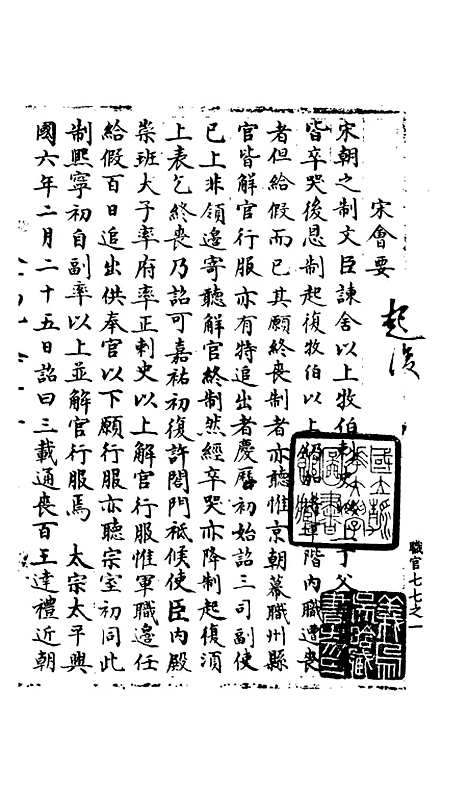 宋會要
起復
宋朝之制文臣諫舍以上牧伯刺史以上丁父
皆卒哭後恩制起復牧伯以上 階內職遭喪
者但給假而已其願終喪制者亦聽惟京朝幕職州縣
官皆解官行服亦有特追出者慶曆初始詔三司副使
已上非領邊寄聽解官終制然經卒哭亦降制起復須
上表乞終喪乃詔可嘉祐初復許閤門祗候使臣內殿
崇班大子率府率正剌史以上解官行服惟軍職邊任
給假百日追出供奉官以下願行服亦聽宗室初同此
制熙寧初自副率以上並解官行服焉 太宗太平興
國六年二月二十五日詔曰三載通喪百王達禮近朝
職官七七之一